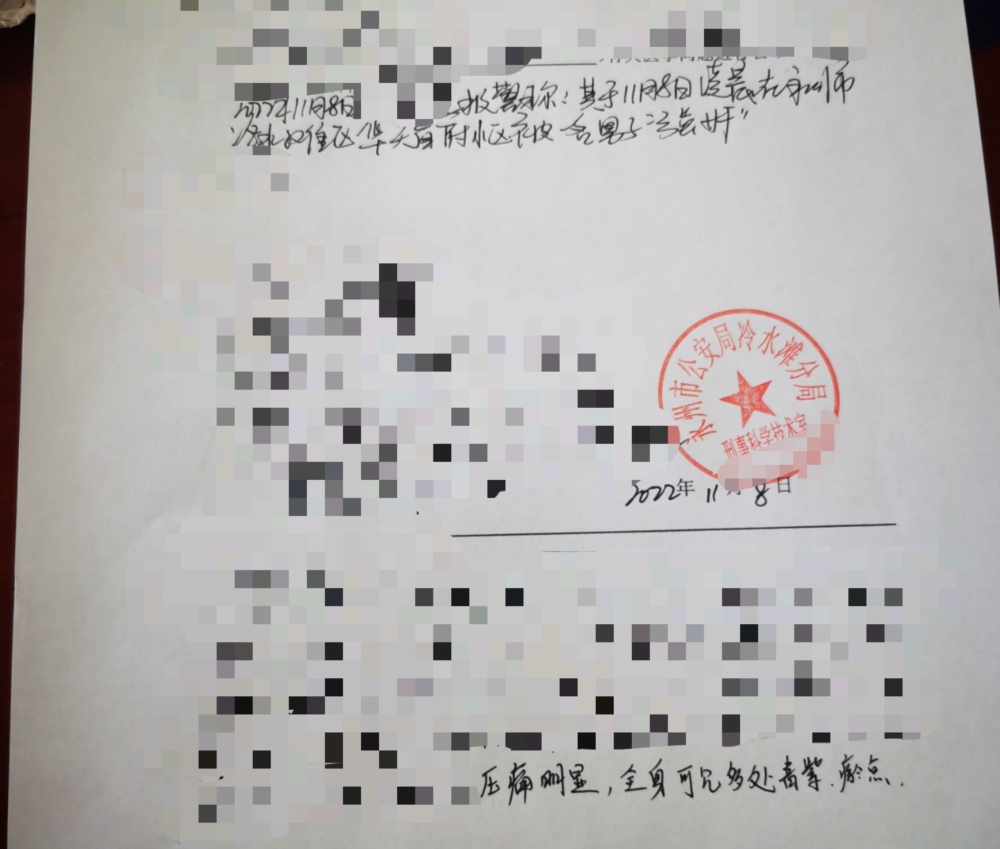 2022年11月8日
报警称：其于11月8日凌晨在永州市
冷水滩区华天 小区 被一名男子"强奸"
永州市公安局冷水滩分局
刑事科学技术室
2022年11月8日
压痛明显，全身可见多处青紫.瘀点.